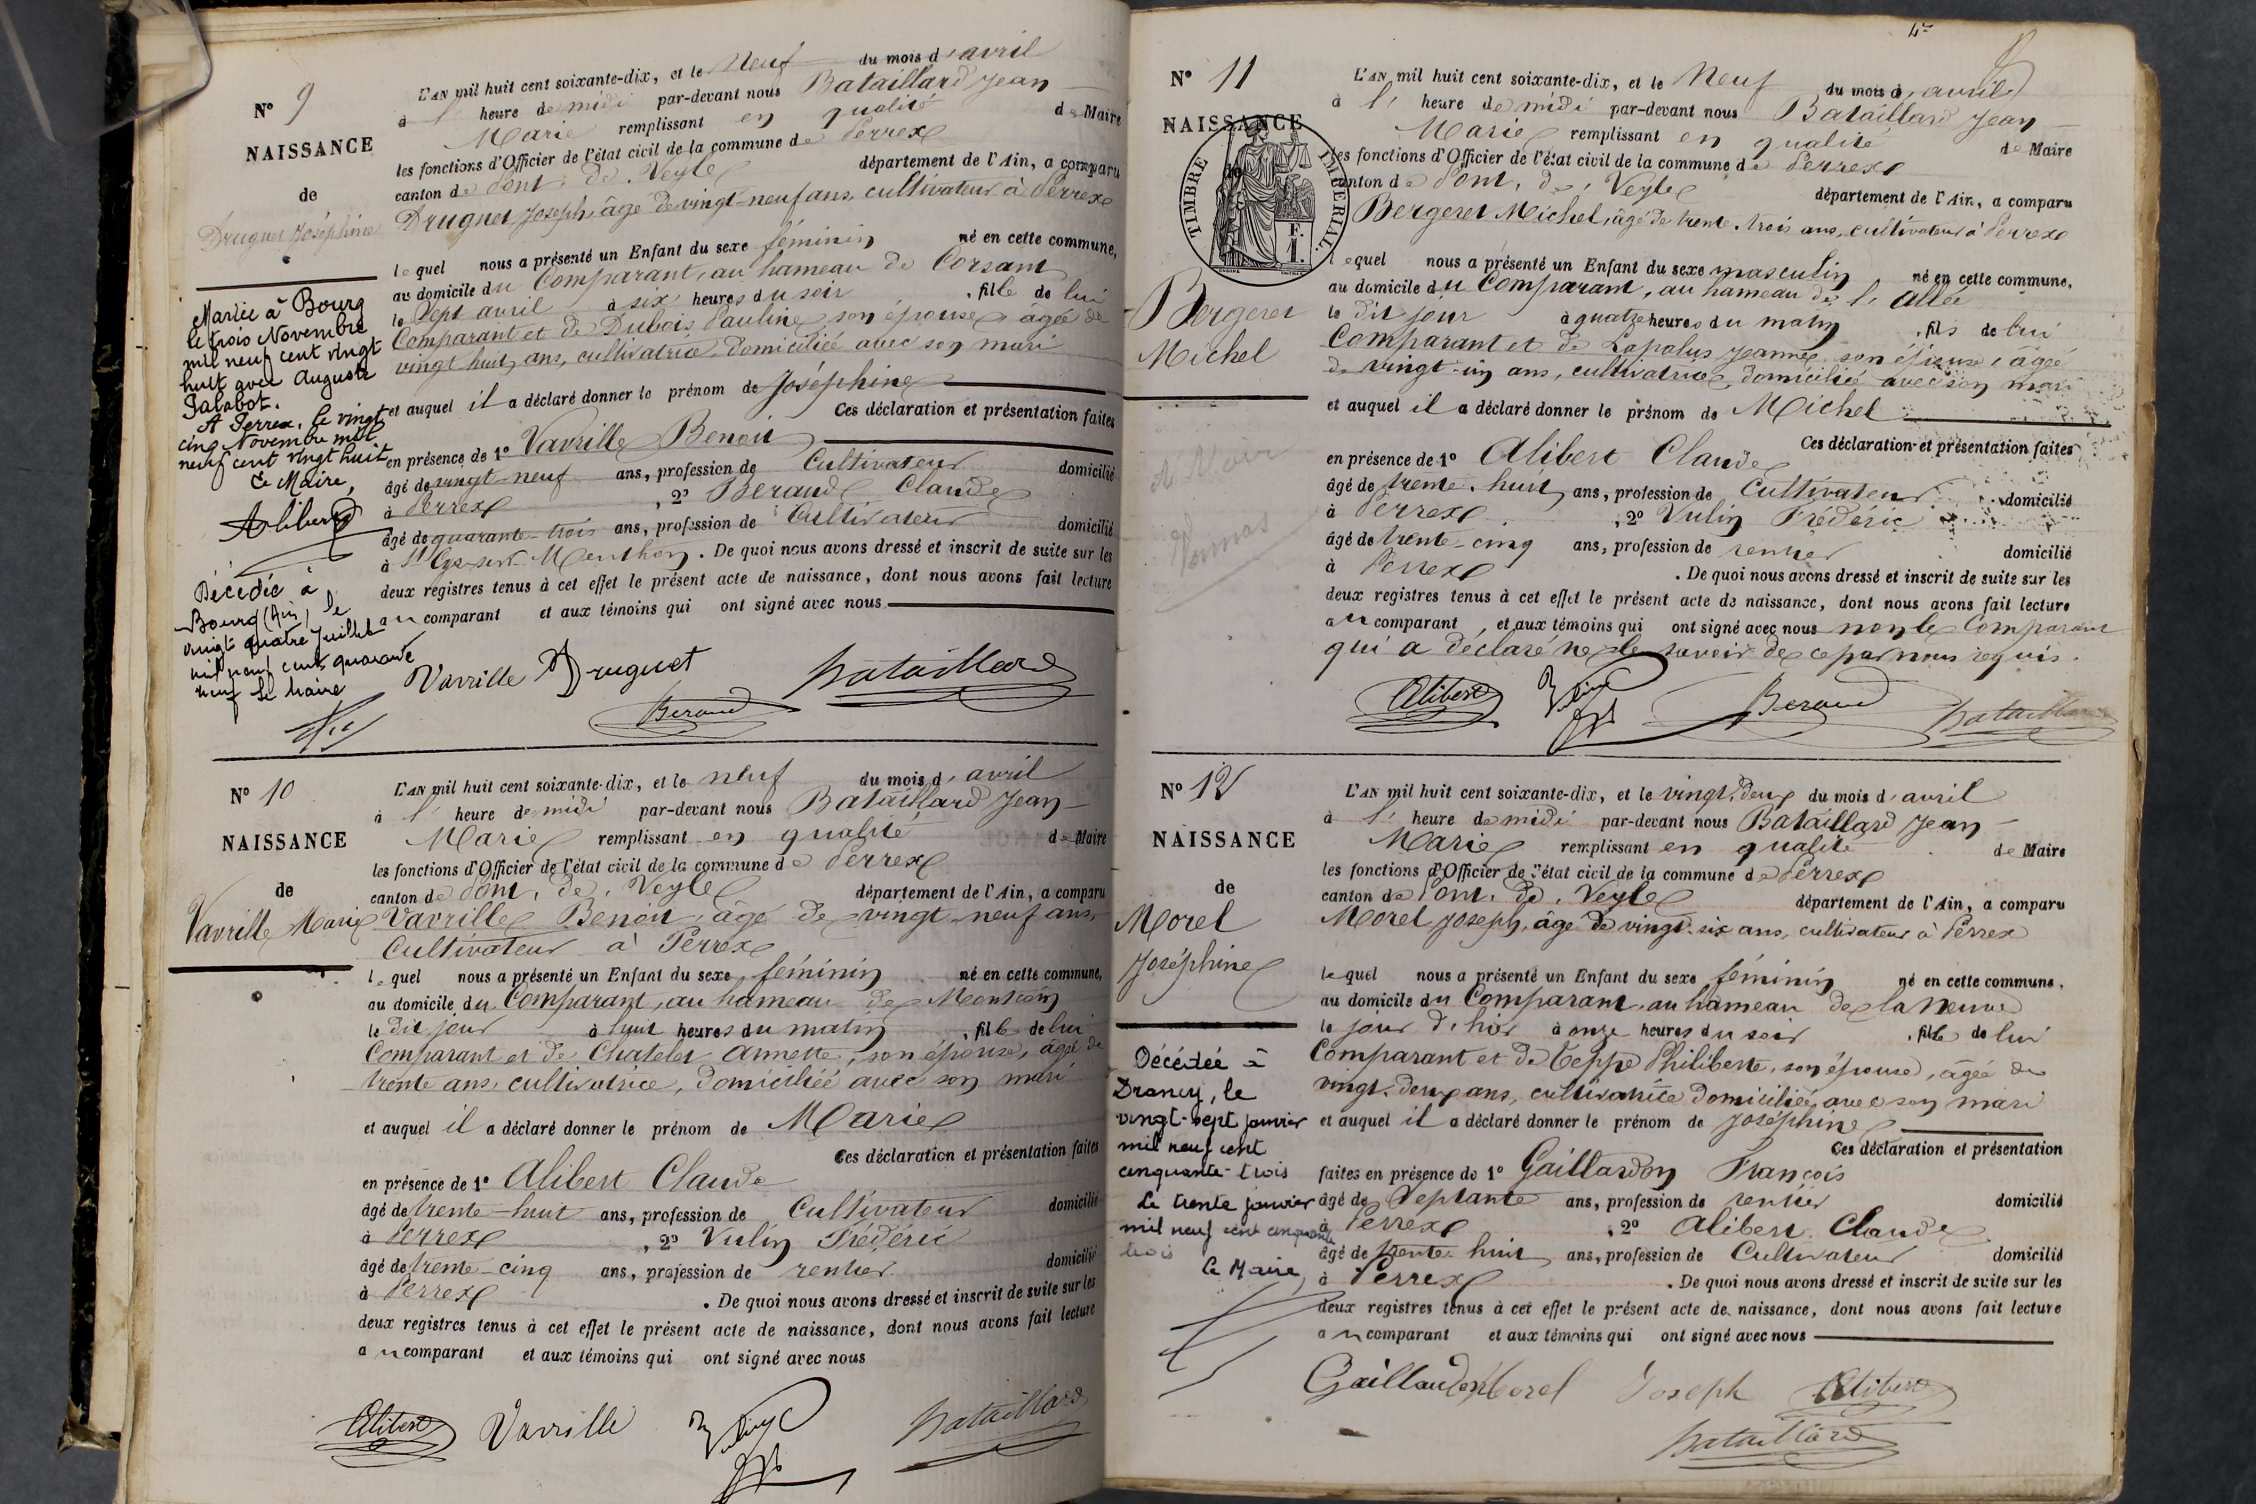 N° 9
NAISSANCE
de
Druguet Joséphine
Mariée à Bourg
le trois Novembre
mil neuf cent vingt
huit avec Auguste
Jalabot.
A Perrex, le vingt
cinq Novembre mil
neuf cent vingt huit
Le Maire,
Alibert
Décédée à
Bourg (Ain) le
vingt quatre Juillet
mil neuf cent quarante
neuf le Maire
L'AN mil huit cent soixante-dix, et le Neuf du mois d'avril
à l' heure de midi par-devant nous Bataillard Jean
Marie remplissant en qualité de Maire
les fonctions d'Officier de l'état civil de la commune de Perrex
canton de Pont. de. Veyle département de l'Ain, a comparu
Druguet Joseph, âgé de vingt-neuf ans, cultivateur à Perrex
lequel nous a présenté un Enfant du sexe féminin né en cette commune,
au domicile du Comparant, au hameau de Corsant
le Sept avril à six heures du soir, fille de lui
Comparant et de Dubois Pauline son épouse âgée de
vingt huit ans, cultivatrice, domiciliée avec son mari
et auquel il a déclaré donner le prénom de Joséphine
Ces déclaration et présentation faites
en présence de 1° Vavrille Benoit
âgé de vingt-neuf ans, profession de Cultivateur domicilié
à Perrex, 2° Beraud Claude
âgé de quarante-trois ans, profession de Cultivateur domicilié
à St Cyr-sur-Menthon. De quoi nous avons dressé et inscrit de suite sur les
deux registres tenus à cet effet le présent acte de naissance, dont nous avons fait lecture
au comparant et aux témoins qui ont signé avec nous
Vavrille Druguet Bataillard
Beraud
N° 10
NAISSANCE
de
Vavrille Marie
L'AN mil huit cent soixante-dix, et le neuf du mois d'avril
à l' heure de midi par-devant nous Bataillard Jean
Marie remplissant en qualité de Maire
les fonctions d'Officier de l'état civil de la commune de Perrex
canton de Pont. de. Veyle département de l'Ain, a comparu
Vavrille Benoit, âgé de vingt-neuf ans,
Cultivateur à Perrex
lequel nous a présenté un Enfant du sexe féminin né en cette commune,
au domicile du Comparant, au hameau de
le dit jour à huit heures du matin, fille de lui
Comparant et de Chatelet Annette, son épouse, âgée de
trente ans, cultivatrice, domiciliée avec son mari
et auquel il a déclaré donner le prénom de Marie
Ces déclaration et présentation faites
en présence de 1° Alibert Claude
âgé de trente-huit ans, profession de Cultivateur domicilié
à Perrex, 2° Vulin Frédéric
âgé de trente-cinq ans, profession de rentier domicilié
à Perrex. De quoi nous avons dressé et inscrit de suite sur les
deux registres tenus à cet effet le présent acte de naissance, dont nous avons fait lecture
au comparant et aux témoins qui ont signé avec nous
Alibert Vavrille Vulin Bataillard
N° 11
NAISSANCE
de
TIMBRE IMPÉRIAL.
1 F.
Bergeret
Michel
L'AN mil huit cent soixante-dix, et le Neuf du mois d'avril
à l' heure de midi par-devant nous Bataillard Jean
Marie remplissant en qualité de Maire
les fonctions d'Officier de l'état civil de la commune de Perrex
canton de Pont. de. Veyle département de l'Ain, a comparu
Bergeret Michel, âgé de trente-trois ans, cultivateur à Perrex
lequel nous a présenté un Enfant du sexe masculin né en cette commune,
au domicile du Comparant, au hameau de l'allée
le dit jour à quatre heures du matin, fils de lui
Comparant et de Lapalus Jeanne son épouse, âgée
de vingt-un ans, cultivatrice, domiciliée avec son mari
et auquel il a déclaré donner le prénom de Michel
Ces déclaration et présentation faites
en présence de 1° Alibert Claude
âgé de trente-huit ans, profession de Cultivateur domicilié
à Perrex, 2° Vulin Frédéric
âgé de trente-cinq ans, profession de rentier domicilié
à Perrex. De quoi nous avons dressé et inscrit de suite sur les
deux registres tenus à cet effet le présent acte de naissance, dont nous avons fait lecture
au comparant, et aux témoins qui ont signé avec nous non le Comparant
qui a déclaré ne le savoir de ce par nous requis.
Alibert Vulin Beraud Bataillard
N° 12
NAISSANCE
de
Morel
Joséphine
Décédée à
Drancy, le
vingt-sept janvier
mil neuf cent
cinquante-trois
Le trente janvier
mil neuf cent cinquante
trois
Le Maire,
L'AN mil huit cent soixante-dix, et le vingt-deux du mois d'avril
à l' heure de midi par-devant nous Bataillard Jean
Marie remplissant en qualité de Maire
les fonctions d'Officier de l'état civil de la commune de Perrex
canton de Pont. de. Veyle département de l'Ain, a comparu
Morel Joseph, âgé de vingt-six ans, cultivateur à Perrex
lequel nous a présenté un Enfant du sexe féminin né en cette commune,
au domicile du Comparant, au hameau de la Neuve
le jour d'hier à onze heures du soir, fille de lui
Comparant et de Teppe Philiberte, son épouse, âgée de
vingt-deux ans, cultivatrice domiciliée avec son mari
et auquel il a déclaré donner le prénom de Joséphine
Ces déclaration et présentation
faites en présence de 1° Gaillardon François
âgé de Septante ans, profession de rentier domicilié
à Perrex, 2° Alibert Claude
âgé de trente-huit ans, profession de Cultivateur domicilié
à Perrex. De quoi nous avons dressé et inscrit de suite sur les
deux registres tenus à cet effet le présent acte de naissance, dont nous avons fait lecture
au comparant et aux témoins qui ont signé avec nous
Gaillardon Morel Joseph Alibert
Bataillard